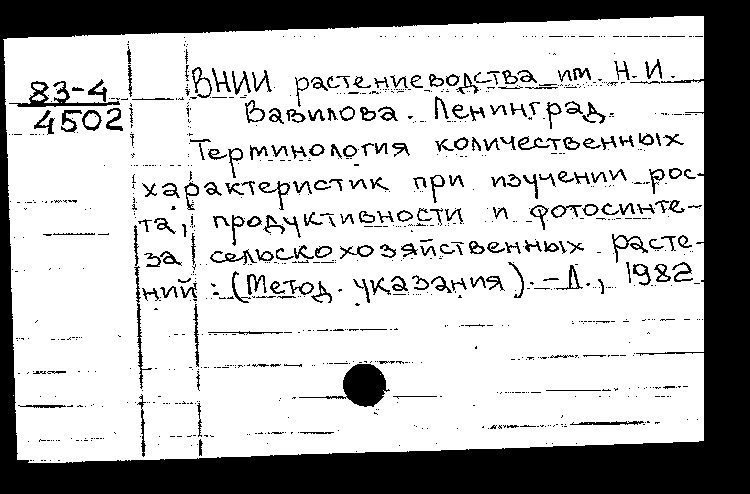 83-4
4502
ВНИИ растениеводства им. Н.И.
Вавилова. Ленинград.
Терминология количественных
характеристик при изучении рос-
та, продуктивности и фотосинте-
за сельскохозяйственных расте-
ний: (Метод. указания). – Л., 1982